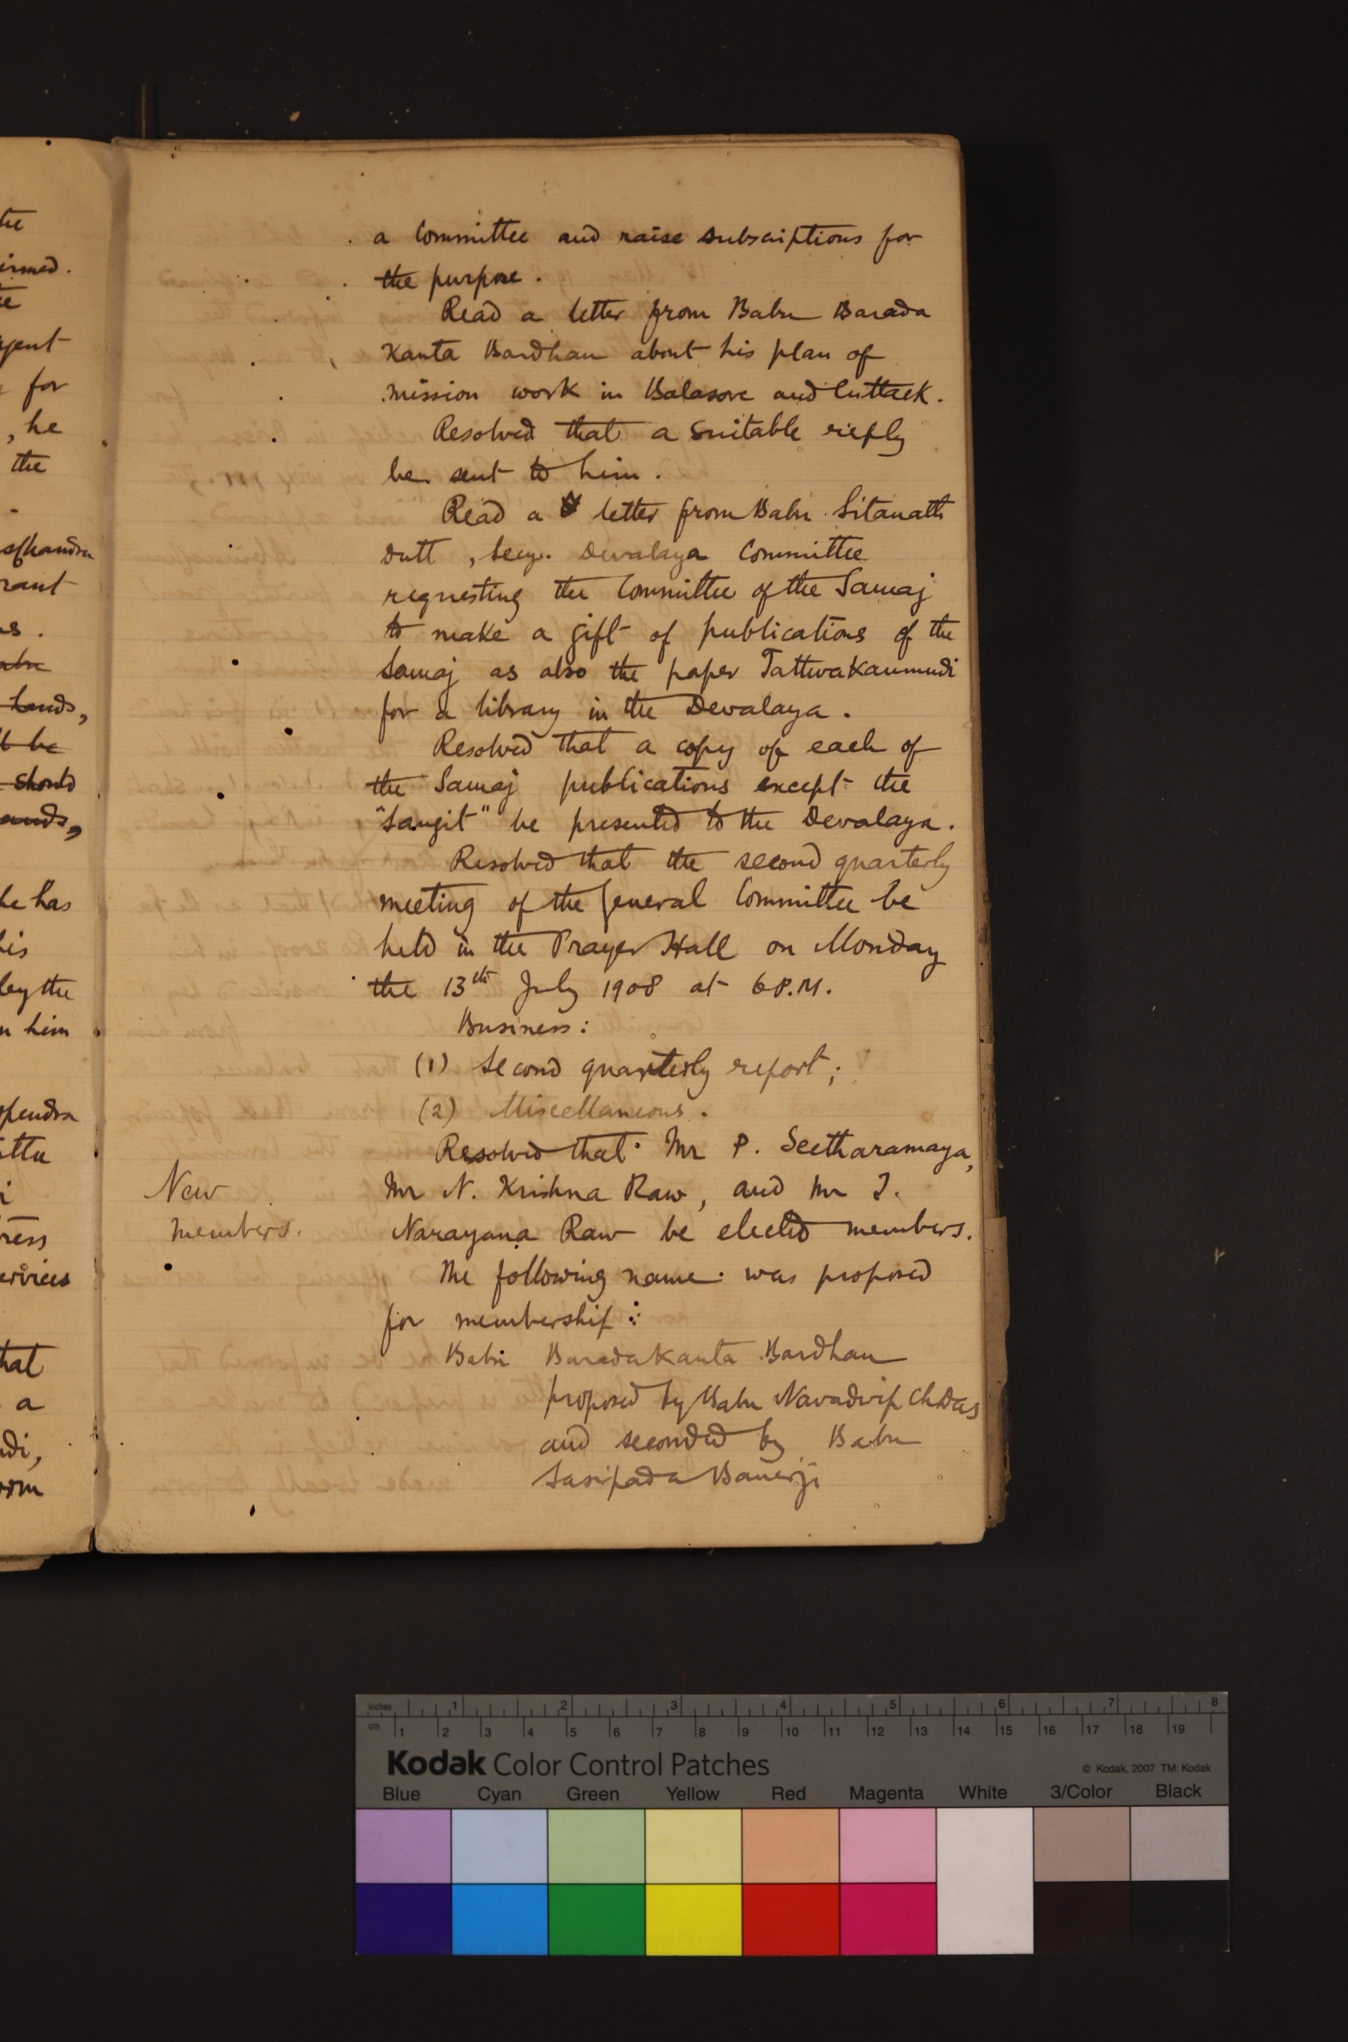 a Committee and raise subscriptions for
the purpose.
Read a letter from Babu Barada
Kanta Bardhan about his plan of
mission work in Balasore and Cuttack.
Resolved that a suitable reply
be sent to him.
Read a letter from Babu Sitanath
Dutt, Secy. Devalaya Committee
requesting the Committee of the Samaj
to make a gift of publications of the
Samaj as also the paper Tattwakaumudi
for a library in the Devalaya.
Resolved that a copy of each of
the Samaj publications except the
"Sangit" be presented to the Devalaya.
Resolved that the second quarterly
meeting of the General Committee be
held in the Prayer Hall on Monday
the 13th July 1908 at 6 P.M.
Business:
(1) Second quarterly report;
(2) Miscellaneous.
Resolved that Mr P. Seetharamaya,
New
members.
Mr N. Krishna Raw, and Mr J.
Narayana Raw be elected members.
The following name was proposed
for membership:
Babu Baradakanta Bardhan
proposed by Babu Navadwip Ch Das
and seconded by Babu
Sasipada Banerji
the
for
, he
the
rant
hands,
be
should
he has
his
by the
him
ress
that
a
inches 1 2 3 4 5 6 7 8
cm 1 2 3 4 5 6 7 8 9 10 11 12 13 14 15 16 17 18 19
Kodak Color Control Patches
© Kodak, 2007 TM: Kodak
Blue Cyan Green Yellow Red Magenta White 3/Color Black